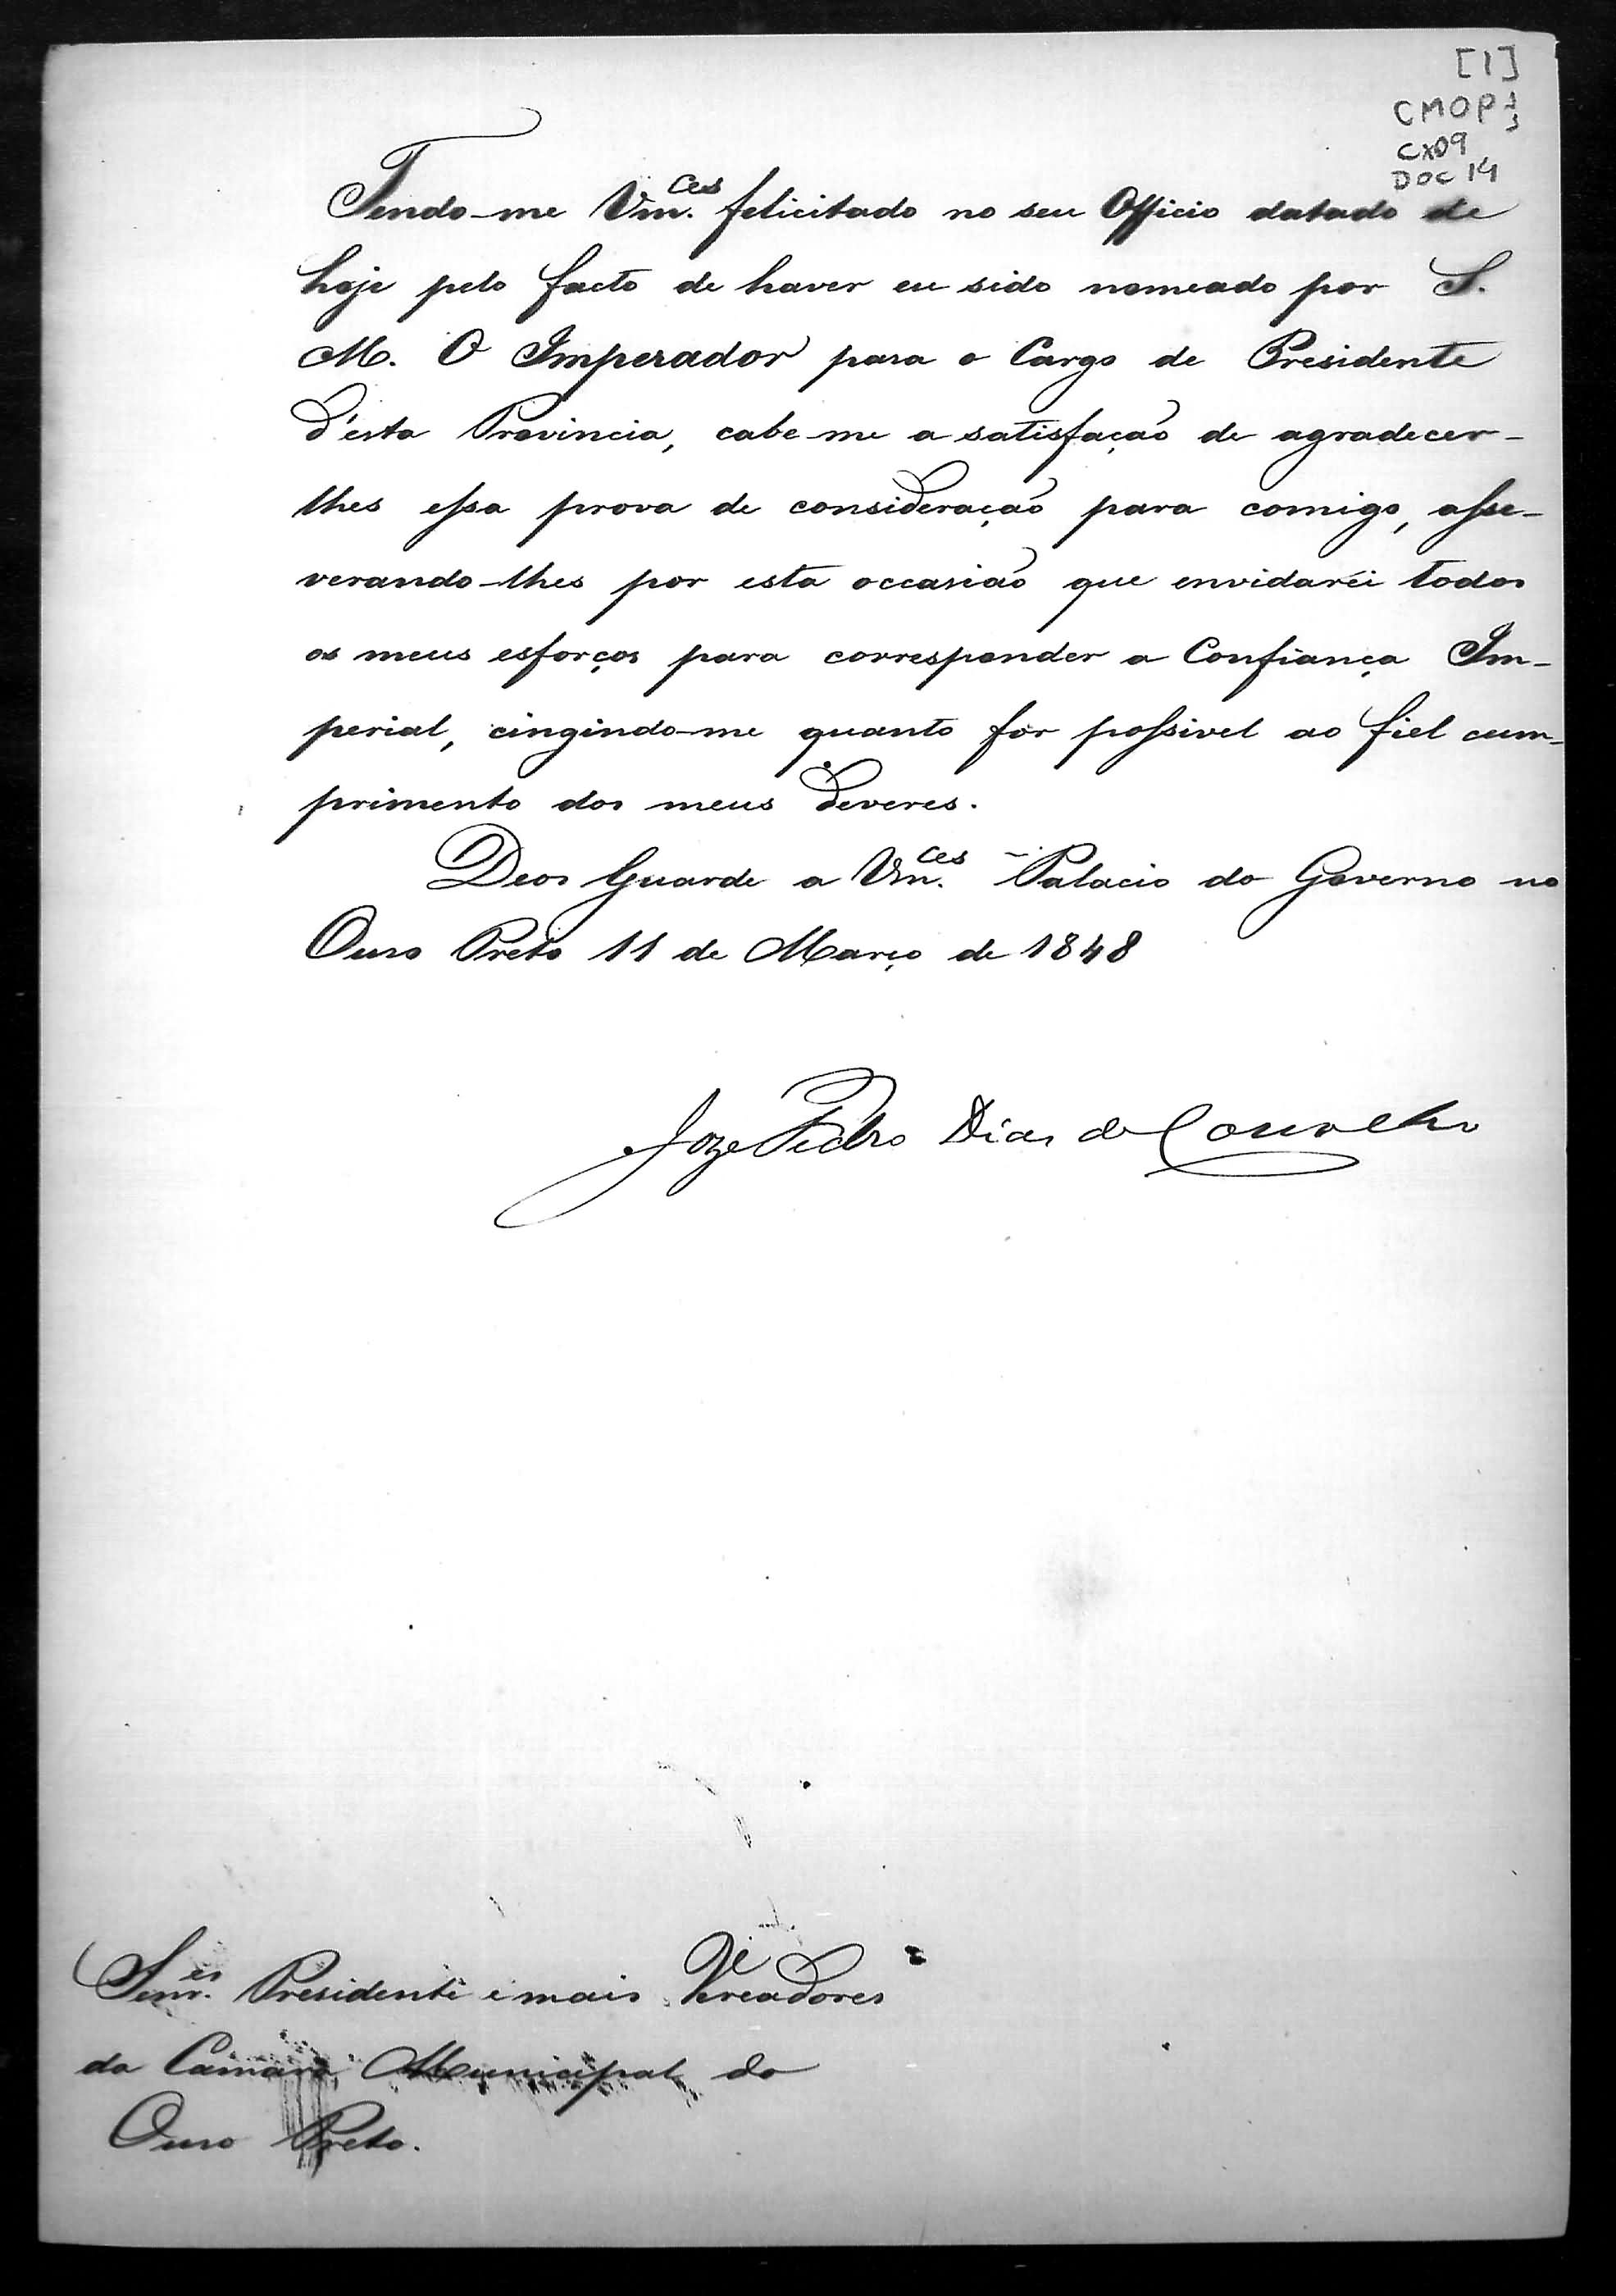 [1]
CMOP 1/3
CX09
DOC 14
Tendo-me Vm.ces felicitado no seu Officio datado de
hoje pelo facto de haver eu sido nomeado por S.
M. O Imperador para o Cargo de Presidente
d'esta Provincia, cabe-me a satisfação de agradecer-
lhes essa prova de consideração para comigo, asse-
verando-lhes por esta occasião que envidarei todos
os meus esforços para corresponder a Confiança Im-
perial, cingindo-me quanto for possivel ao fiel cum-
primento dos meus deveres.
Deos Guarde a Vm.ces Palacio do Governo no
Ouro Preto 11 de Março de 1848
Joze Pedro Dias de Carvalho
Senr.es Presidente e mais Vereadores
da Camara Municipal do
Ouro Preto.